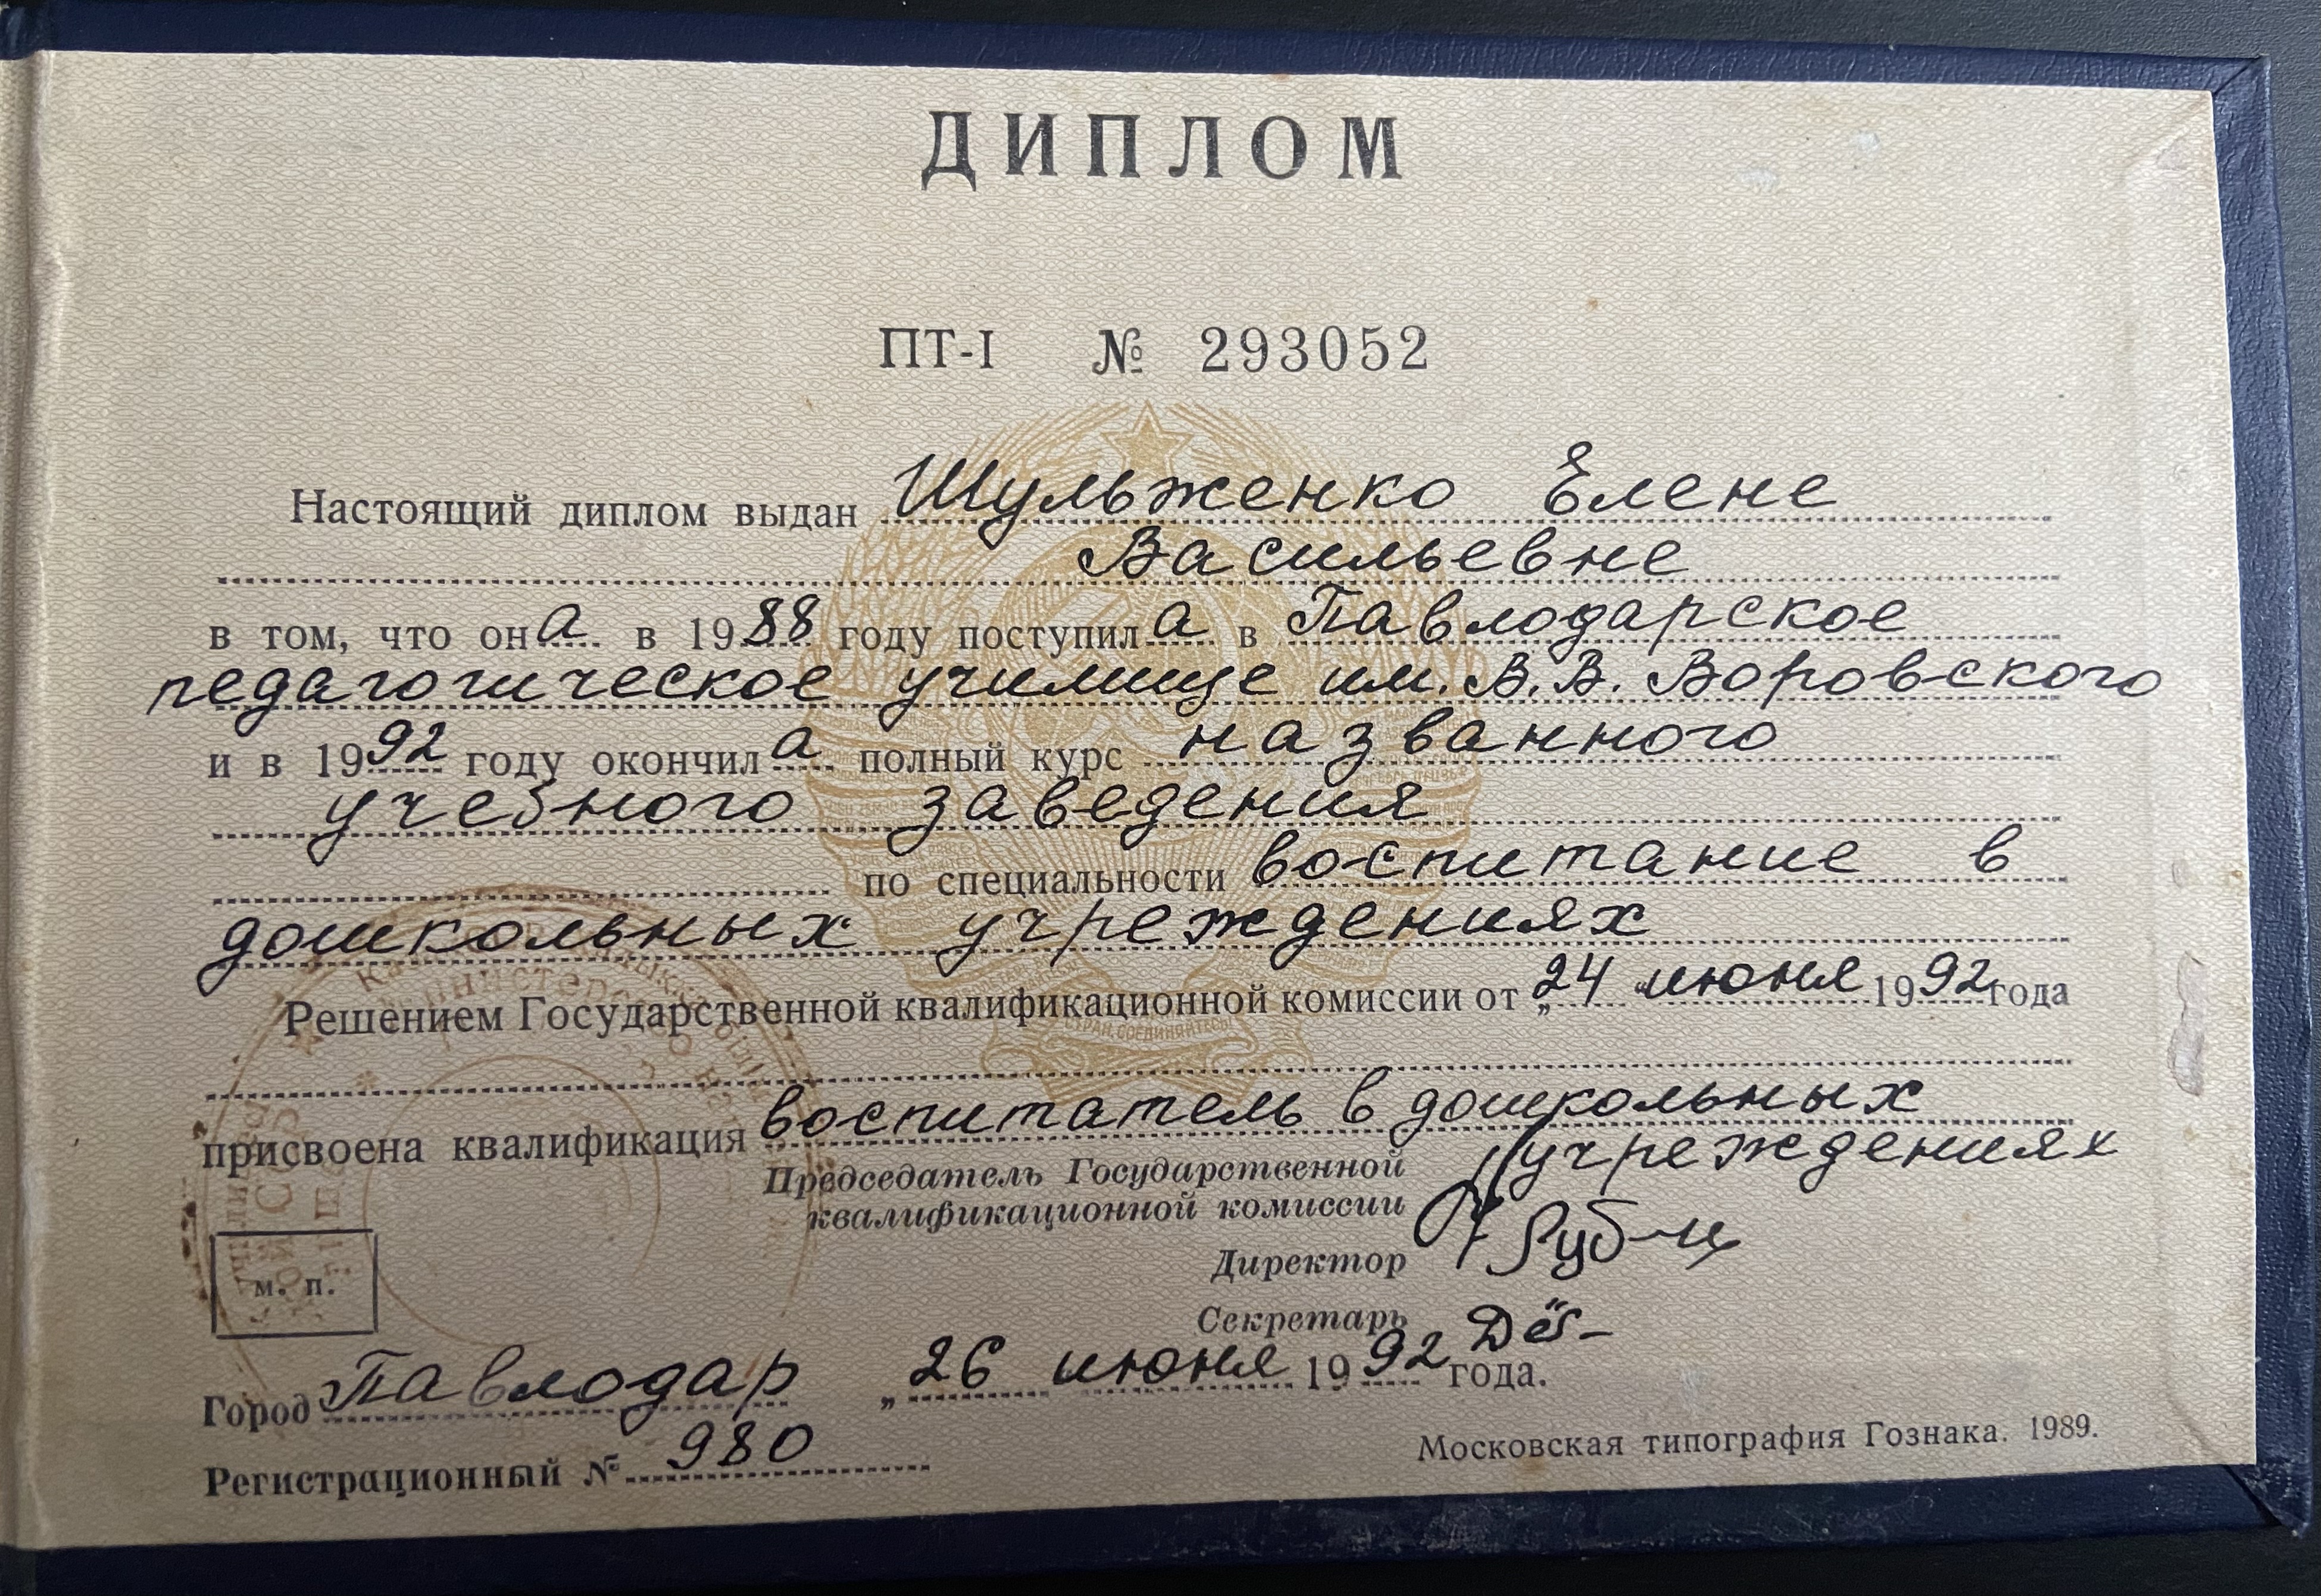 ДИПЛОМ
ПТ-I № 293052
Настоящий диплом выдан Шульженко Елене
Васильевне
в том, что она в 1988 году поступила в Павлодарское
педагогическое училище им. В.В. Воровского
и в 1992 году окончила полный курс названного
учебного заведения
по специальности воспитание в
дошкольных учреждениях
Решением Государственной квалификационной комиссии от „24 " июня 1992 года
присвоена квалификация воспитатель в дошкольных
учреждениях
Председатель Государственной
квалификационной комиссии
Директор
Секретарь
м. п.
Город Павлодар „26 июня 1992 года.
Регистрационный № 980
Московская типография Гознака. 1989.